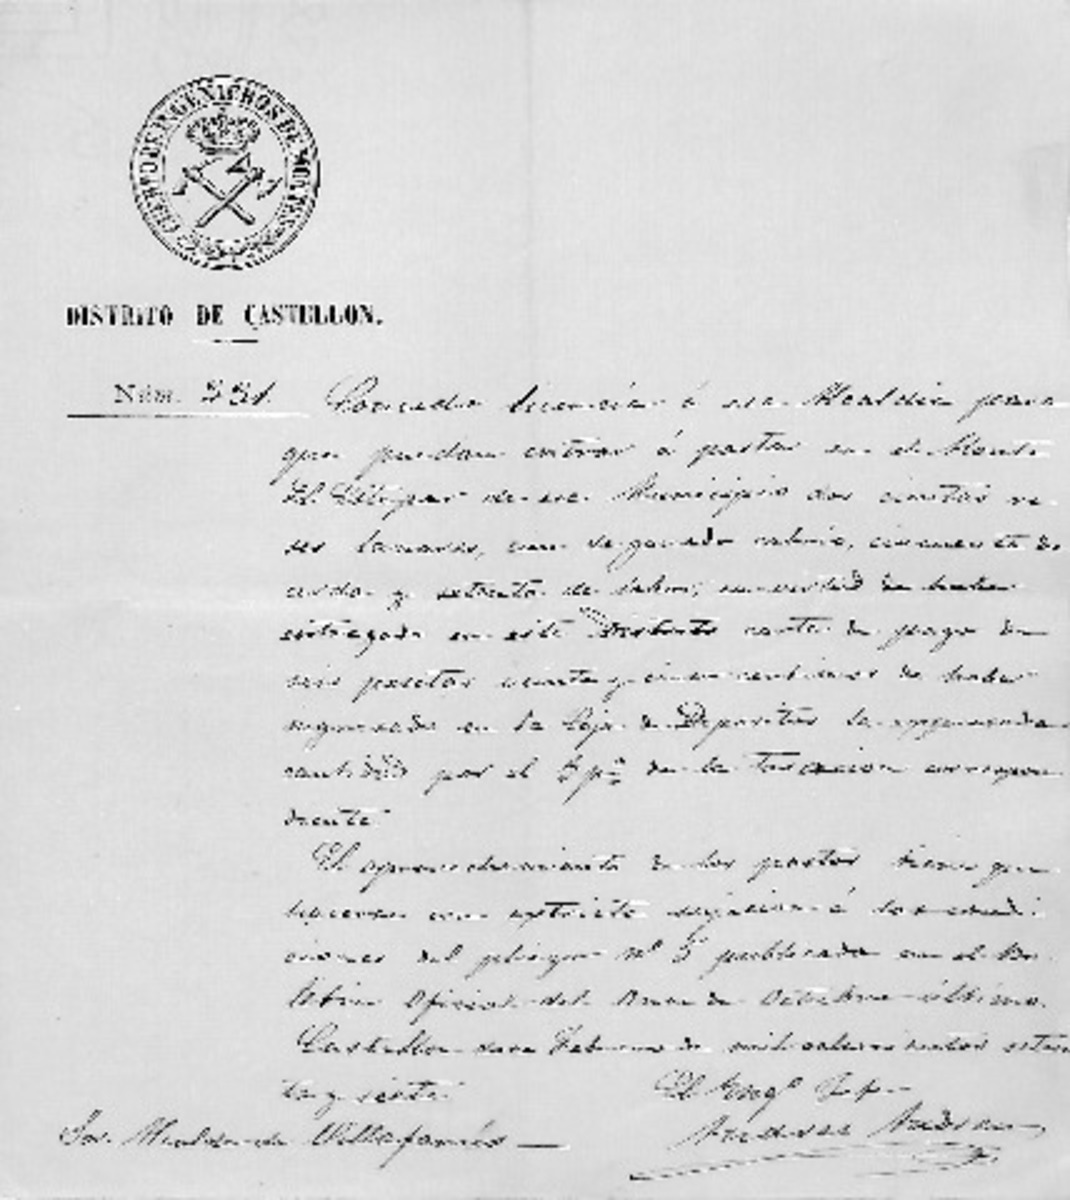 CUERPO DE INGENIEROS DE MONTES
DISTRITO DE CASTELLON.
Núm. 331. Concedo licencia á esa Alcaldia para
que puedan entrar á pastar en el Monte
El de ese Municipio dos cientas re-
ses lanares, cien de ganado cabrio, cincuenta de
cerda y setenta de labor, en virtud de haber
entregado en este Distrito carta de pago de
seis pesetas veinte y cinco centimos de haber
ingresado en la Caja de Depositos la espresada
cantidad por el 5 p% de la tasacion correspon
diente.
El aprovechamiento de los pastos tiene que
hacerse con estricta sujecion á las condi-
ciones del pliego nº 5 publicado en el Bo-
letin Oficial del once de Octubre último.
Castellon doce Febrero de mil ochocientos seten
ta y siete.
El Yngº Jefe
Sor. Alcalde de Villafamés